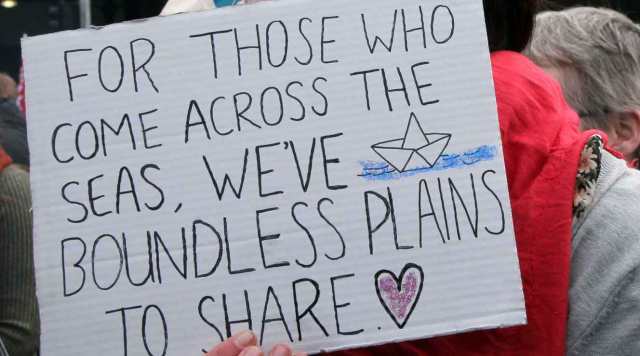 FOR THOSE WHO
COME ACROSS THE
SEAS, WE'VE
BOUNDLESS PLAINS
TO SHARE.